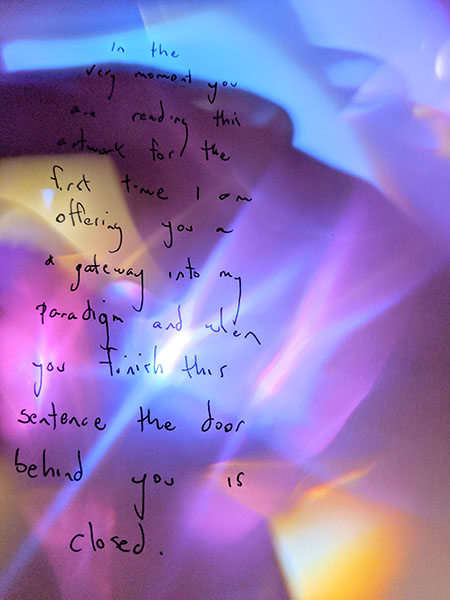 In the
very moment you
are reading this
artwork for the
first time I am
offering you a
* gateway into my
paradigm and when
you finish this
sentence the door
behind you is
closed.